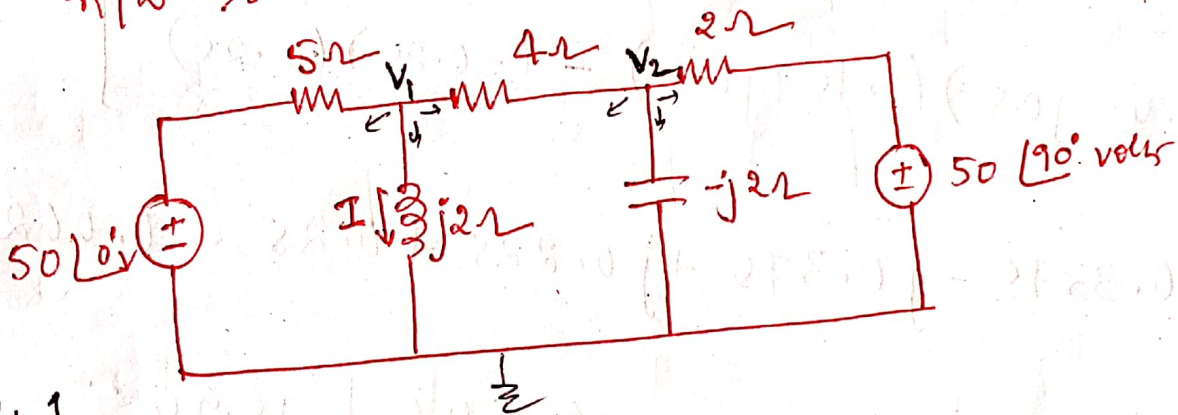 5Ω V1 4Ω V2 2Ω
50∠0°v I↓ j2Ω -j2Ω 50∠90° volts